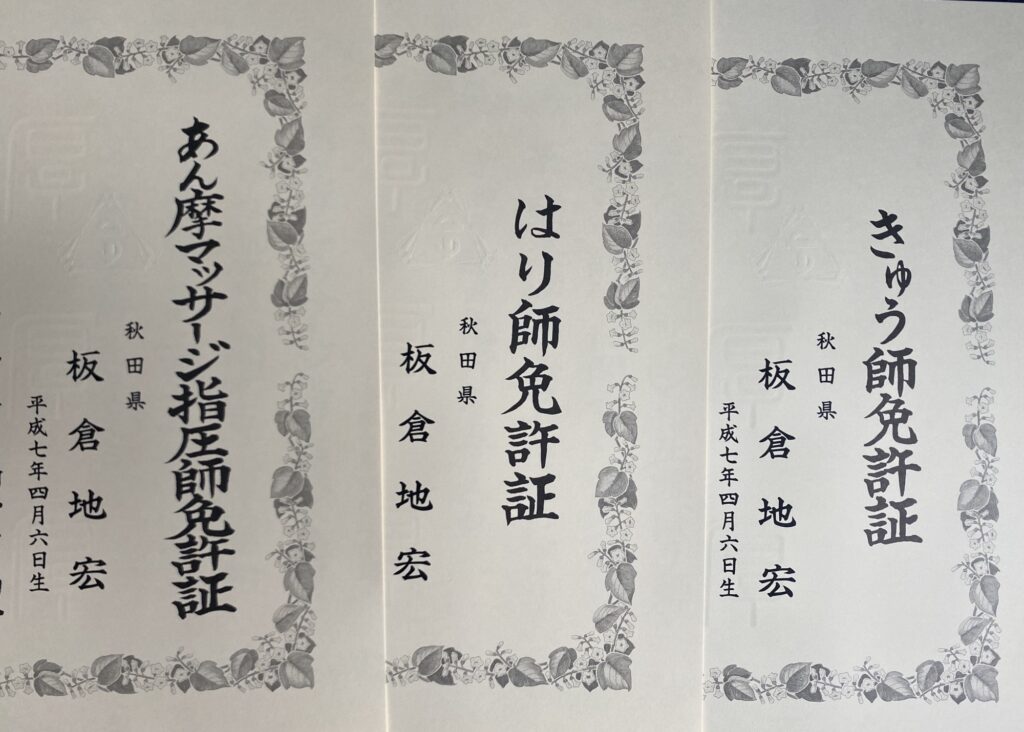 きゅう師免許証
秋田県
板倉地宏
平成七年四月六日生
はり師免許証
秋田県
板倉地宏
あん摩マッサージ指圧師免許証
秋田県
板倉地宏
平成七年四月六日生